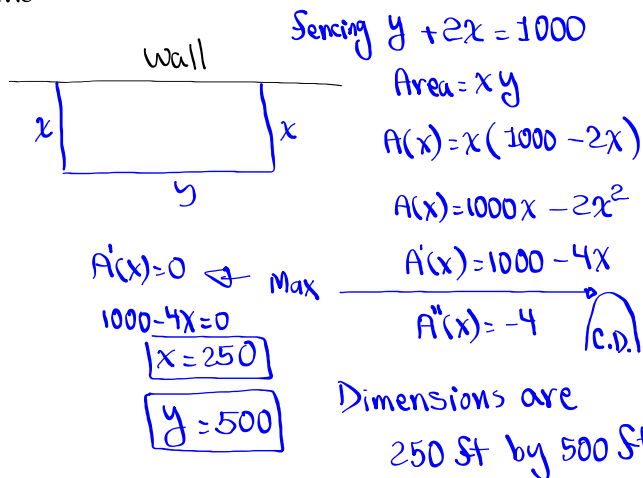 wall
x
x
y
fencing y + 2x = 1000
Area = xy
A(x) = x(1000 - 2x)
A(x) = 1000x - 2x²
A'(x) = 1000 - 4x
A''(x) = -4
C.D.
A'(x) = 0 Max
1000 - 4x = 0
x = 250
y = 500
Dimensions are
250 ft by 500 ft